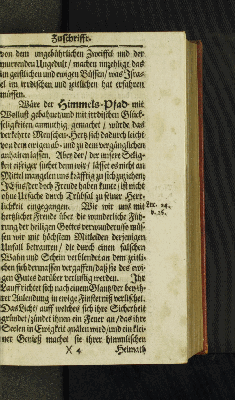 Zuschrifft.
von dem ungebührlichen Zweiffel und der
murrenden Ungedult / machen unzehlige das
im geistlichen und ewigen Büssen / was Isra-
el im irrdischen und zeitlichen hat erfahren
müssen.
Wäre der Himmels-Pfad mit
Wollust gebahnet und mit irrdischen Glück-
seligkeiten anmuthig gemachet / würde das
verkehrte Menschen-Hertz sich dadurch leicht
von dem ewigen ab- und zu dem vergänglichen
anhalten lassen. Aber der / der unsere Selig-
keit eifriger suchet denn wir / lässet es nicht an
Mittel mangeln uns kräfftig zu sich zu ziehen;
JEsus / der doch Freude haben kunte / ist nicht
ohne Ursache durch Trübsal zu seiner Herr-
lichkeit eingegangen. Wie wir uns mit
Luc. 24.
v. 26.
hertzlicher Freude über die wunderliche Füh-
rung der heiligen Gottes verwundern / so müs-
sen wir mit höchstem Mitleiden derjenigen
Unfall betrauren / die durch einen falschen
Wahn und Schein verblendet an dem zeitli-
chen sich dermassen vergaffen / daß sie des ewi-
gen Gutes darüber verlustig werden. Ihr
Lauff richtet sich nach einem Glantz / der bey ih-
rer Anlendung in ewige Finsterniß verlischet.
Das Licht / auff welches sich ihre Sicherheit
gründet / zündet ihnen ein Feuer an / das ihre
Seelen in Ewigkeit quälen wird / und ein klei-
ner Genieß machet sie ihrer himmlischen
X 4
Heimath